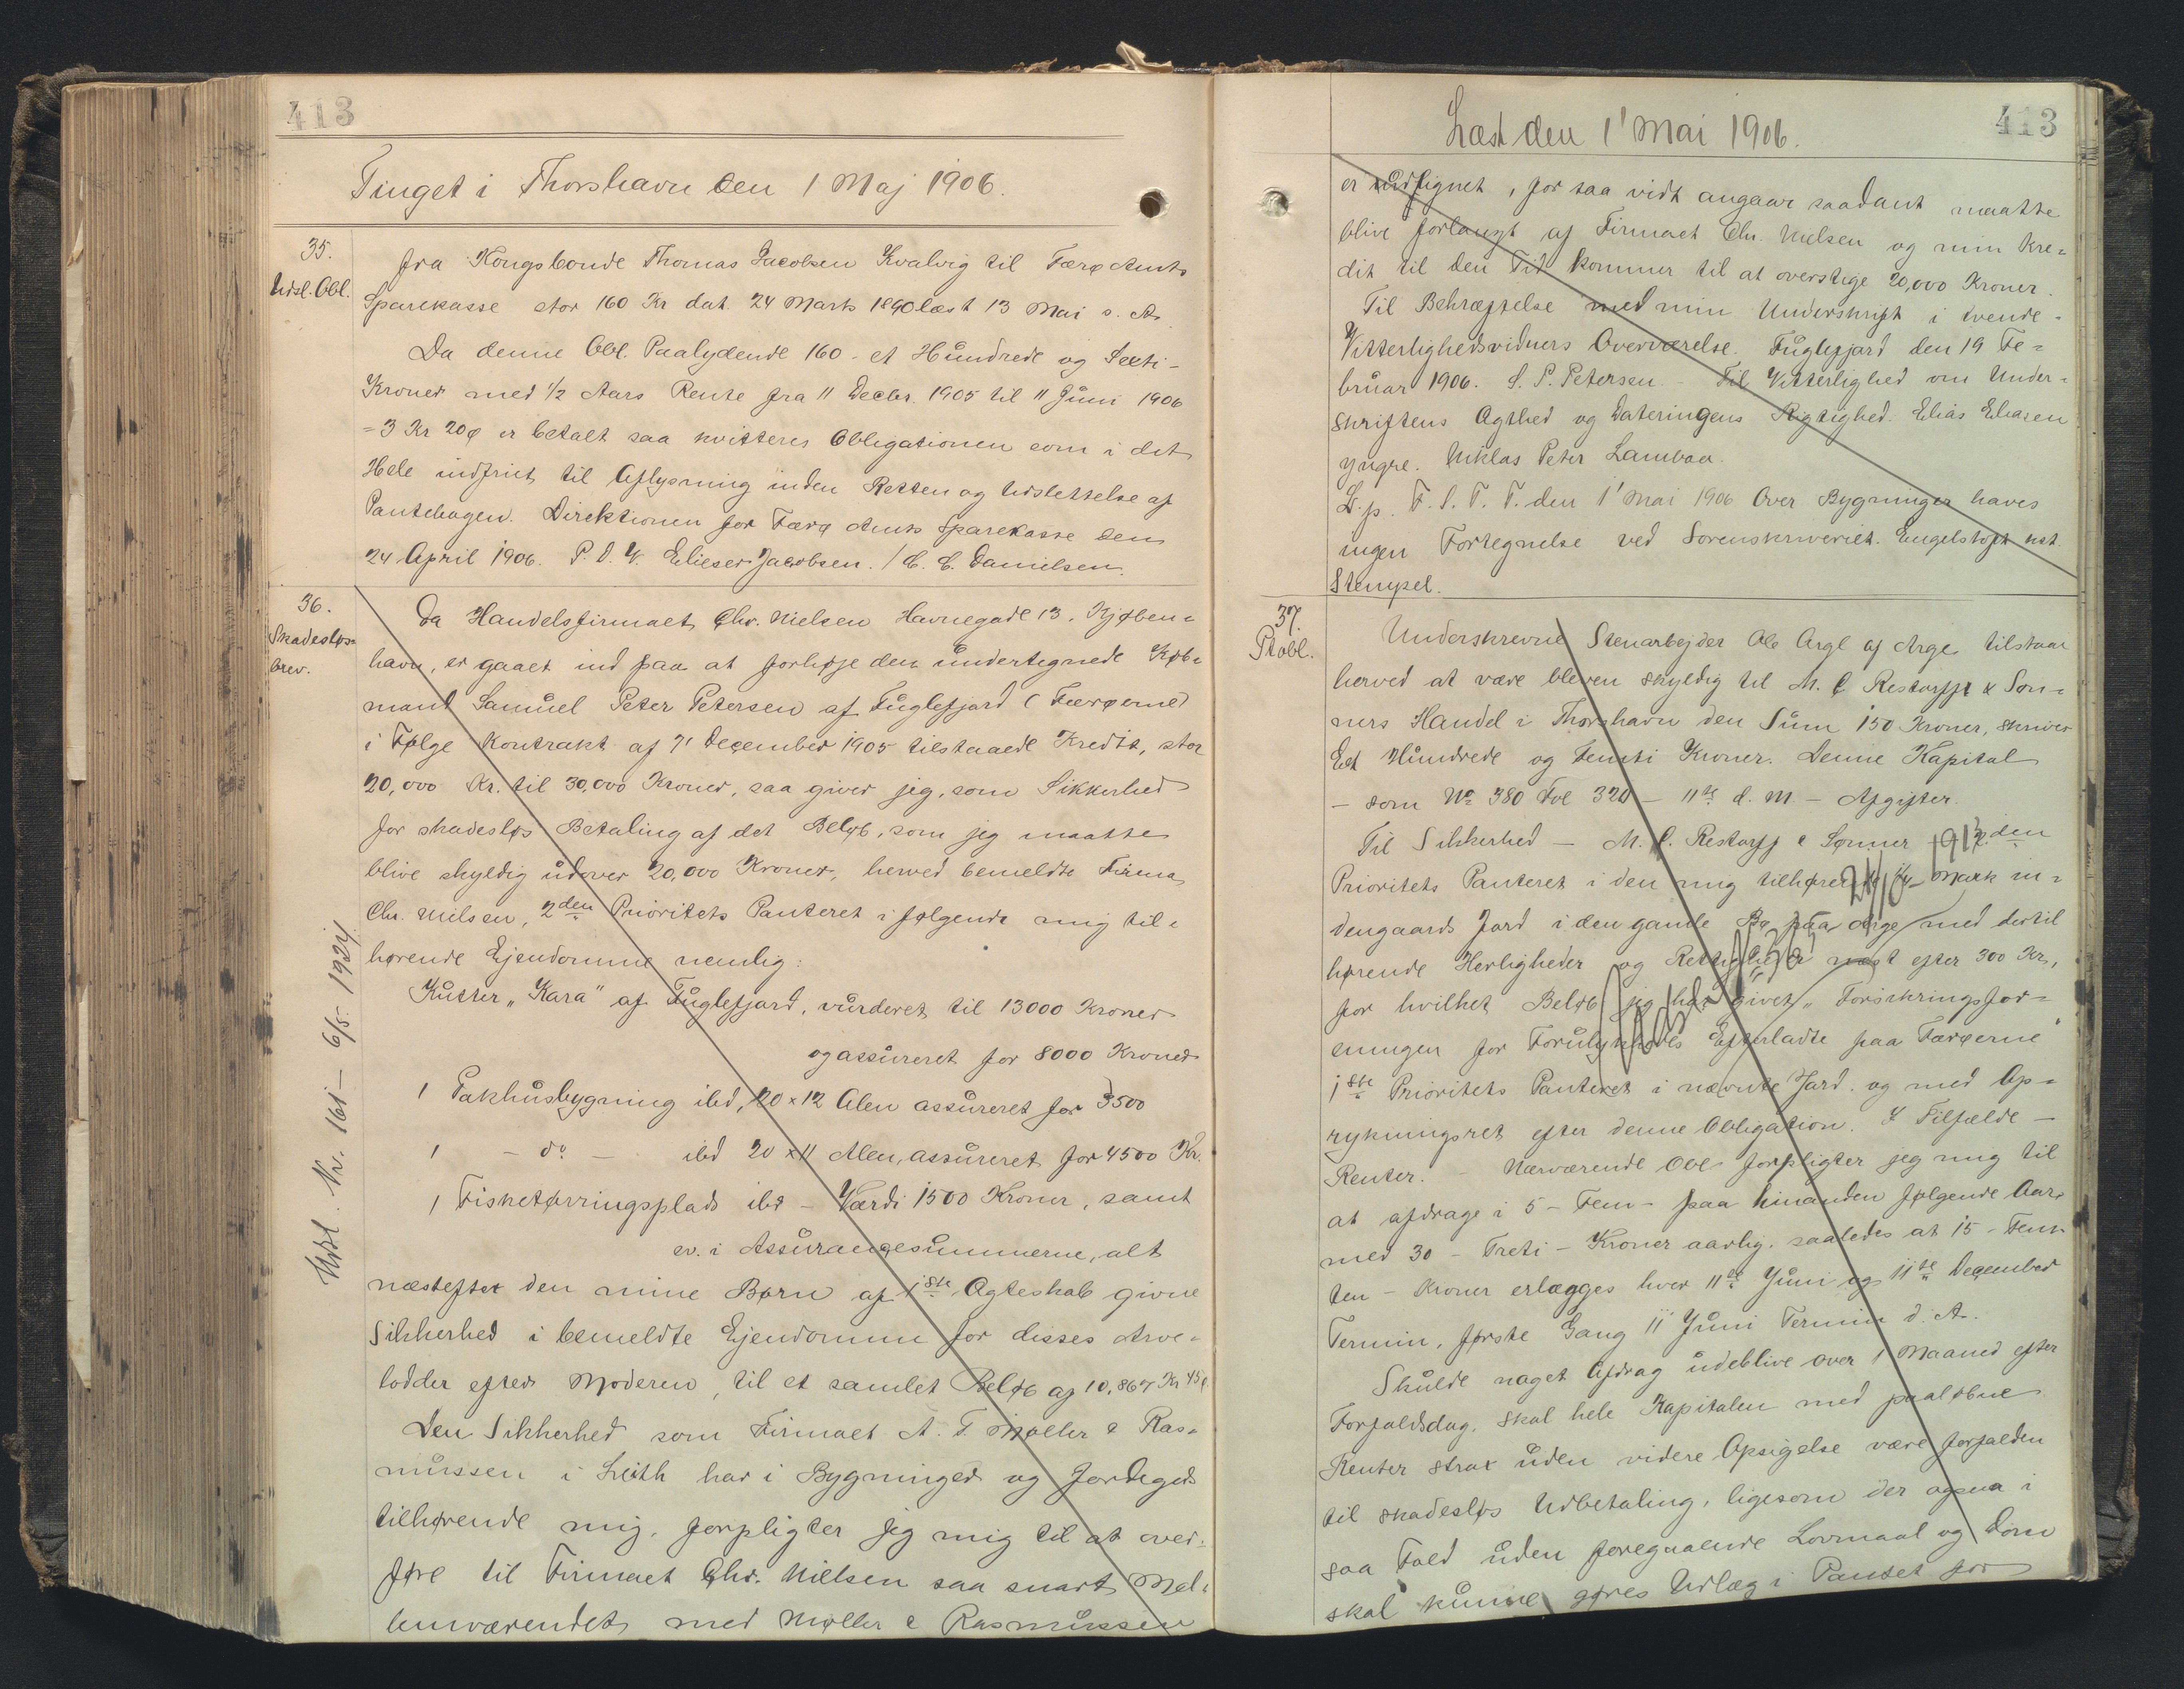 413
Tinget i Thorshavn den 1 Maj 1906.
35.
Udsl. Obl.
fra Kongsbonde Thomas Jacobsen Kvalvig til Færø Amts
Sparekasse stor 160 Kr dat. 24 Marts 1890 læst 13 Mai s. A.
Da denne Obl. Paalydende 160 - et Hundrede og Sexti -
Kroner med 1/2 Aars Rente fra 11 Decbr. 1905 til 11 Juni 1906
= 3 Kr 20ø er betalt saa kvitteres Obligationen som i det
Hele indfriet til Aflysning inden Retten og Udslettelse af
Pantebogen. Direktionen for Færø Amts Sparekasse den
24 April 1906. P. D. V. Elieser Jacobsen. / C. C. Danielsen.
36.
Skadesløs=
brev.
Da Handelsfirmaet Chr. Nielsen Havnegade 13. Kjøben=
havn, er gaaet ind paa at forhøje den undertegnede Køb=
mand Samuel Peter Petersen af Fuglefjord (Færøerne)
i Følge Kontrakt af 7' December 1905 tilstaaede Kredit, stor
20,000 Kr. til 30,000 Kroner, saa giver jeg, som Sikkerhed
for skadesløs Betaling af det Beløb, som jeg maatte
blive skyldig udover 20,000 Kroner, herved bemeldte Firma
Chr. Nielsen, 2den Prioritets Panteret i følgende mig til=
hørende Ejendomme nemlig:
Kutter "Kara" af Fuglefjord, vurderet til 13000 Kroner
og assureret for 8000 Kroner
1 Pakhusbygning ibd, 20 x 12 Alen assureret for 3500
1 - do - ibd 20 x 11 Alen, assureret for 4500 Kr.
1 Fisketørringsplads ibd - Værdi 1500 Kroner, samt
ev. i Assurancesummerne, alt
næstefter den mine Børn af 1ste Ægteskab givne
Sikkerhed i bemeldte Ejendomme for disses Arve=
lodder efter Moderen, til et samlet Beløb af 10,867 Kr 45ø.
Den Sikkerhed som Firmaet A. T. Møller & Ras=
mussen i Leith har i Bygninger og Jordegods
tilhørende mig, forpligter jeg mig til at over=
føre til Firmaet Chr. Nielsen saa snart Mel=
lemværendet med Møller & Rasmussen
Udsl. Nr. 161 - 6/5 1924
Læst den 1' Mai 1906.
413
er udlignet, for saa vidt angaar saadant maatte
blive forlangt af Firmaet Chr. Nielsen og min Kre=
dit til den Tid kommer til at overstige 20,000 Kroner.
Til Bekræftelse med min Underskrift i tvende=
Vitterlighedsvidners Overværelse. Fuglefjord den 19 Fe=
bruar 1906. S. P. Petersen. - Til Vitterlighed om Under=
skriftens Ægthed og Dateringens Rigtighed. Elias Eliasen
yngre. Niklas Peter Lambaa.
L. p. F. S. T. T. den 1' Mai 1906 Over Bygninger haves
ingen Fortegnelse ved Sorenskriveriet. Engelstoft kst.
Stempel.
37.
Pt obl.
Underskrevne Stenarbejder Ole Argl af Arge tilstaar
herved at være bleven skyldig til M. C Restorff & Søn=
ners Handel i Thorshavn den Sum 150 Kroner, skriver
Eet Hundrede og Femti Kroner. Denne Kapital
- som No 380 Fol 320 - 11te d. M. - Afgifter.
Til Sikkerhed - M. C. Restorff & Sønner 2den
Prioritets Panteret i den mig tilhørende Mark in=
dengaards Jord i den gamle Bø paa Arge med dertil
hørende Herligheder og Rettigheder næst efter 300 Kr,
for hvilket Beløb jeg har givet "Forsikringsfor=
eningen for Forulykkedes Efterladte paa Færøerne"
1ste Prioritets Panteret i nævnte Jord. og med Op=
rykningsret efter denne Obligation. I Tilfælde -
Renter. - Nærværende Obl forpligter jeg mig til
at afdrage i 5 - Fem - paa hinanden følgende Aar,
med 30 - Treti - Kroner aarlig. saaledes at 15 - Fem-
ten - Kroner erlægges hver 11te Juni og 11te December
Termin, første Gang 11' Juni Termin d. A.
Skulde noget Afdrag udeblive over 1 Maaned efter
Forfaldsdag. skal hele Kapitalen med paaløbne
Renter strax uden videre Opsigelse være forfalden
til skadesløs Udbetaling, ligesom der ogsaa i
saa Fald uden foregaaende Lovmaal og Dom
skal kunne gøres Udlæg i Pantet for